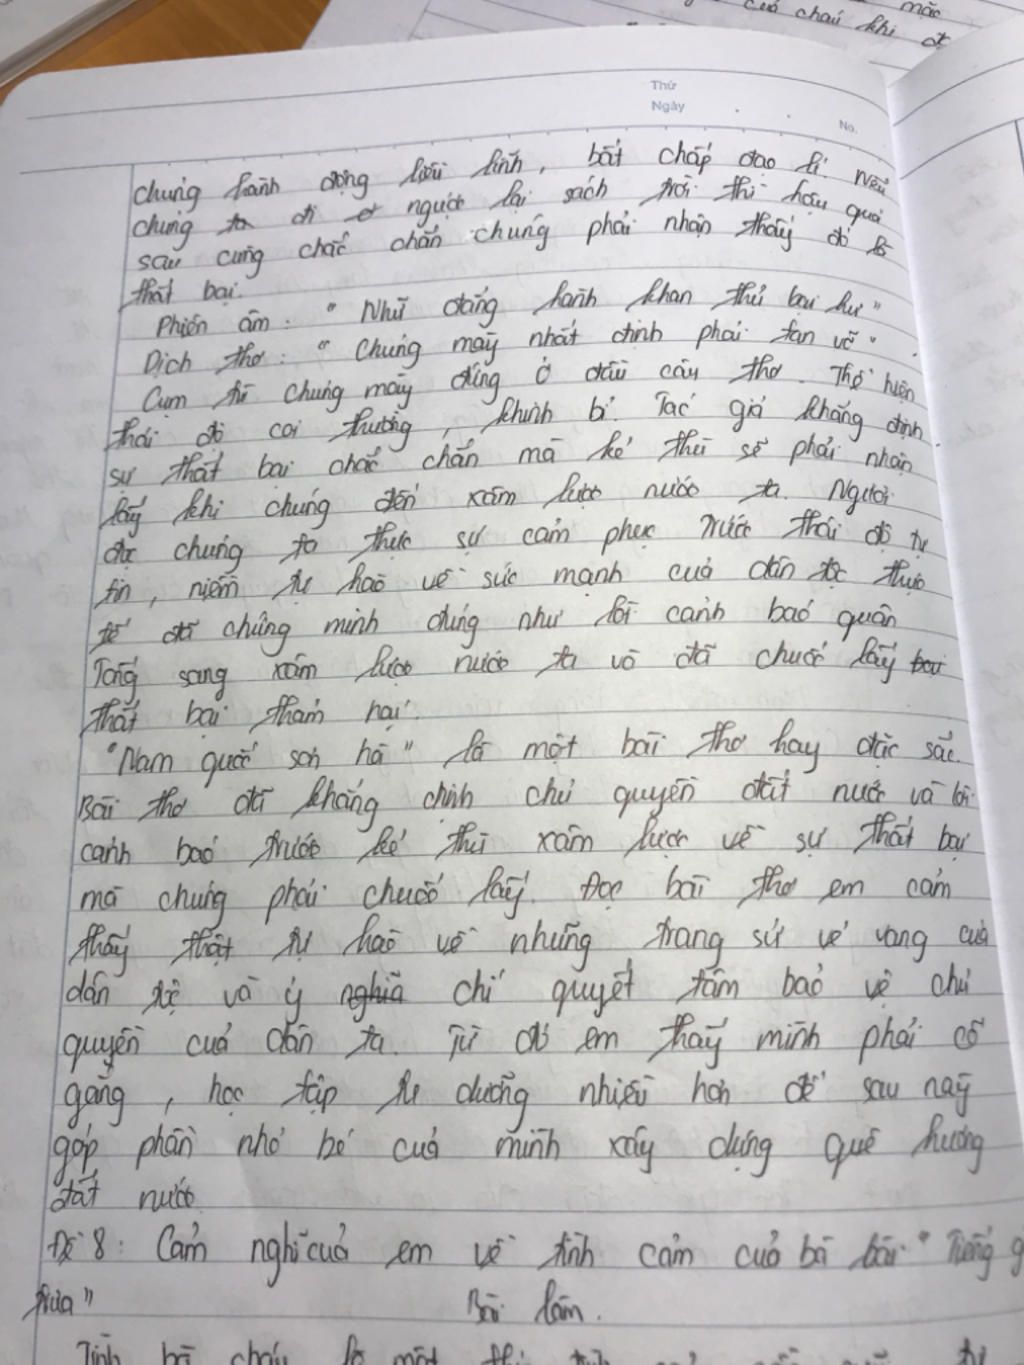 mặc
của cháu khi đ
Thứ
Ngày
No.
chúng hành động liều lĩnh, bất chấp đạo lí. Nếu
chúng ta đi ngược lại sách trời thì hậu quả
sau cùng chắc chắn chúng phải nhận thấy đó là
thất bại.
Phiên âm: "Nhữ đẳng hành khan thủ bại hư"
Dịch thơ: "Chúng mày nhất định phải tan vỡ".
Cụm từ chúng mày đứng ở đầu câu thơ. Thể hiện
thái độ coi thường, khinh bỉ. Tác giả khẳng định
sự thất bại chắc chắn mà kẻ thù sẽ phải nhận
lấy khi chúng đến xâm lược nước ta. Người
đọc chúng ta thực sự cảm phục trước thái độ tự
tin, niềm tự hào về sức mạnh của dân tộc thực
tế đã chứng minh đúng như lời cảnh báo quân
Tống sang xâm lược nước ta và đã chuốc lấy bại
thất bại thảm hại.
"Nam quốc sơn hà" là một bài thơ hay đặc sắc.
Bài thơ đã khẳng định chủ quyền đất nước và lời
cảnh báo trước kẻ thù xâm lược về sự thất bại
mà chúng phải chuốc lấy. Đọc bài thơ em cảm
thấy thật tự hào về những trang sử vẻ vang của
dân tộc và ý nghĩa chí quyết tâm bảo vệ chủ
quyền của dân ta. Từ đó em thấy mình phải cố
gắng, học tập tu dưỡng nhiều hơn để sau này
góp phần nhỏ bé của mình xây dựng quê hương
đất nước.
Đề 8: Cảm nghĩ của em về tình cảm của bà bài "Tiếng g
trưa"
Bài làm.
Tình bà cháu là một